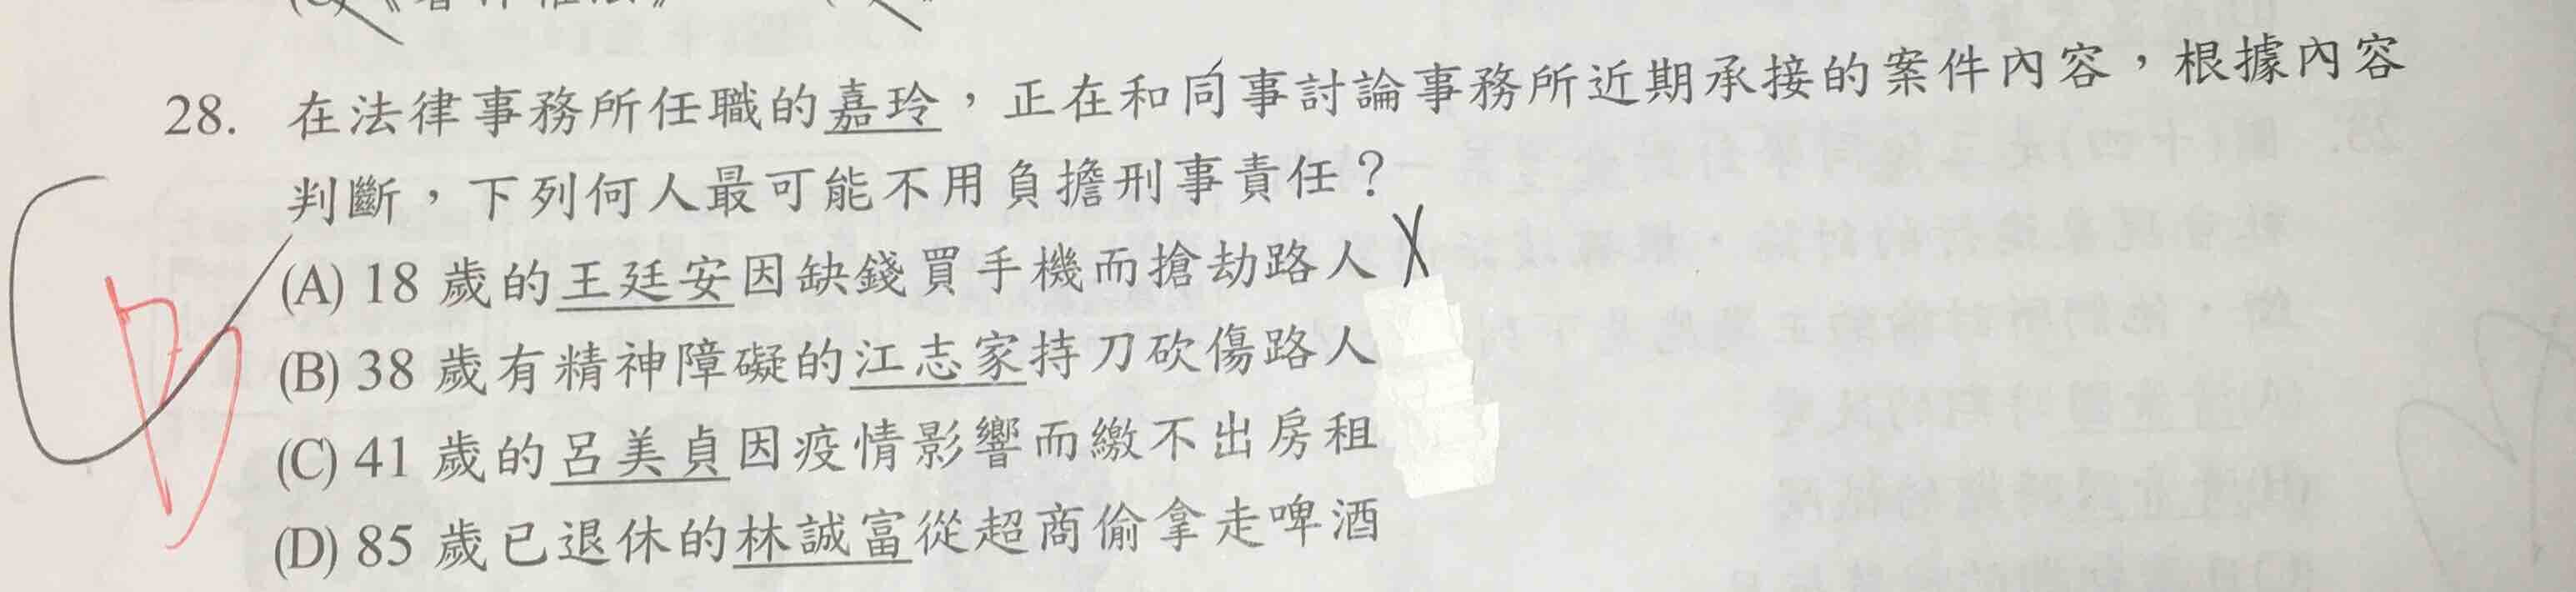 28. 在法律事務所任職的嘉玲，正在和同事討論事務所近期承接的案件內容，根據內容
判斷，下列何人最可能不用負擔刑事責任？
(A) 18 歲的王廷安因缺錢買手機而搶劫路人
(B) 38 歲有精神障礙的江志家持刀砍傷路人
(C) 41 歲的呂美貞因疫情影響而繳不出房租
(D) 85 歲已退休的林誠富從超商偷拿走啤酒